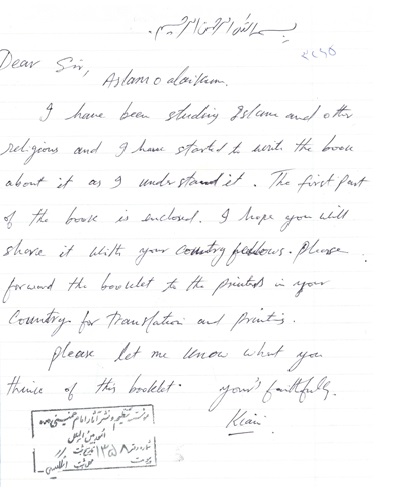 بسم الله الرحمن الرحیم
Dear Sir,
Aslamo alaikum.
I have been studing Islam and other
religious and I have started to write the book
about it as I understand it. The first part
of the book is enclosed. I hope you will
share it with your country fellows. Please
forward the booklet to the printers in your
Country for translation and printing.
please let me know what you
think of this booklet. your's faithfully.
Kiani
موسسه تنظیم و نشر آثار امام خمینی
امور بین الملل